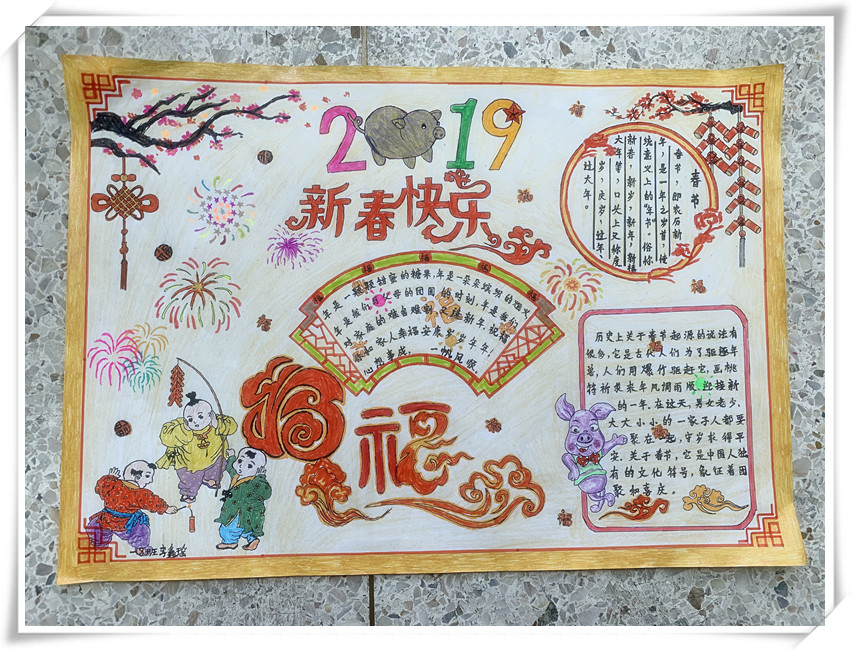 2019
新春快乐
春节
春节，即农历新
年，是一年之岁首，传
统意义上的“年节”。俗称
新春，新岁，新年，新禧
大年等，口头上又称度
岁，庆岁，过年
过大年。
年是一颗颗甜蜜的糖果，年是一朵朵缤纷的烟火
年是我们与父母的团圆的时刻，年是我们
又逢新年，祝福
家和家人幸福安康
心想事成， 一帆风顺。
福
福
历史上关于春节起源的说法有
很多，它是古代人们为了驱逐年
兽，人们用爆竹驱赶它，画桃
符祈求来年风调雨顺，迎接新
的一年。在这天，男女老少，
大大小小的一家子人都要
聚在一起，守岁祈得平
安。关于春节，它是中国人独
有的文化符号，象征着团
聚和喜庆。